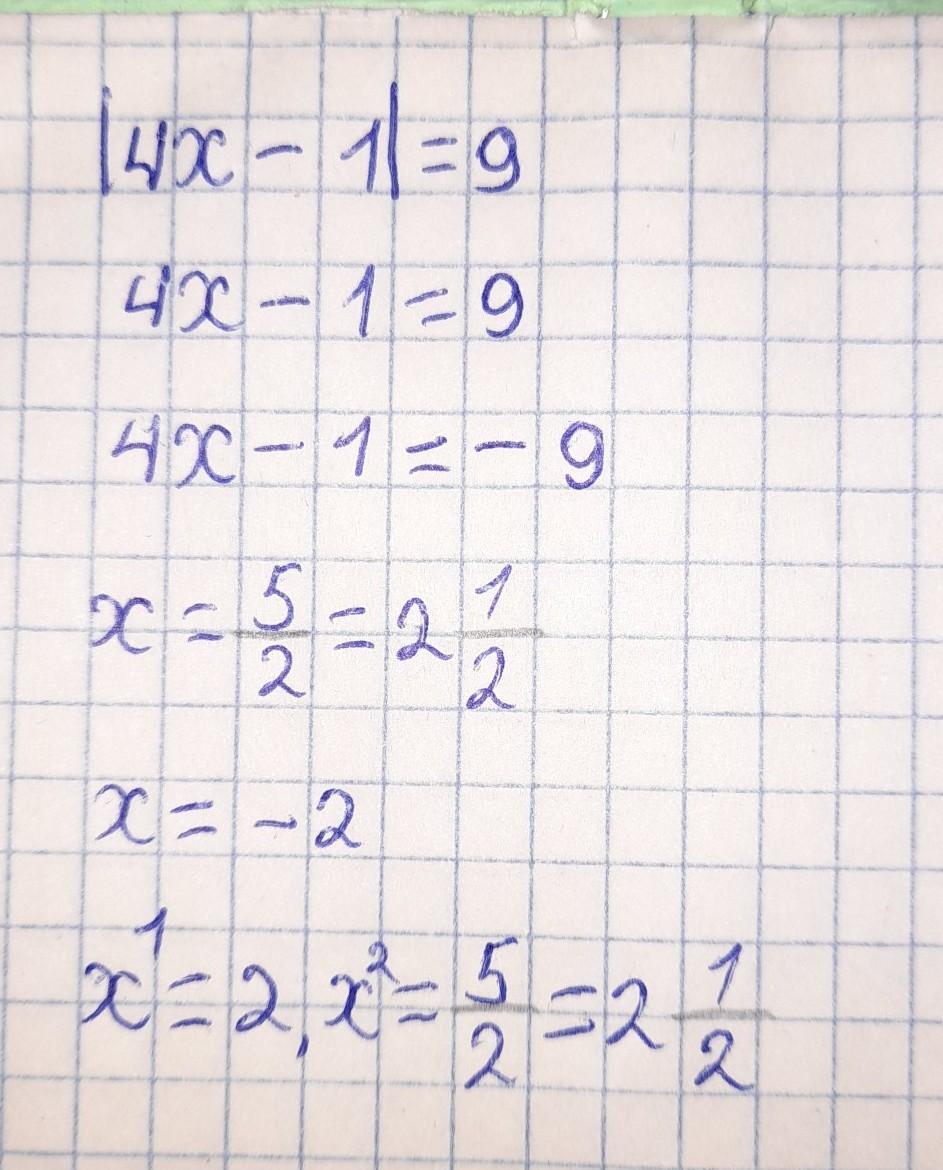 |4x - 1| = 9
4x - 1 = 9
4x - 1 = - 9
x = 5/2 = 2 1/2
x = - 2
x¹ = 2, x² = 5/2 = 2 1/2